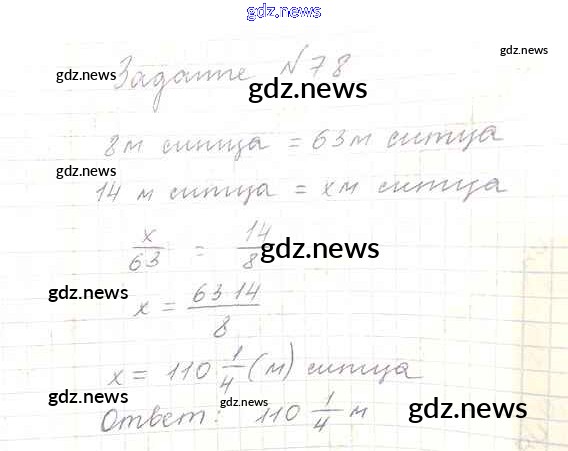 gdz.news
gdz.news
Задание №78
gdz.news
gdz.news
8м ситца = 63м ситца
gdz.news
14 м ситца = xм ситца
x/63 = 14/8
gdz.news
gdz.news
x = 63·14/8
gdz.news
x = 110 1/4 (м) ситца
gdz.news
gdz.news
gdz.news
Ответ: 110 1/4 м